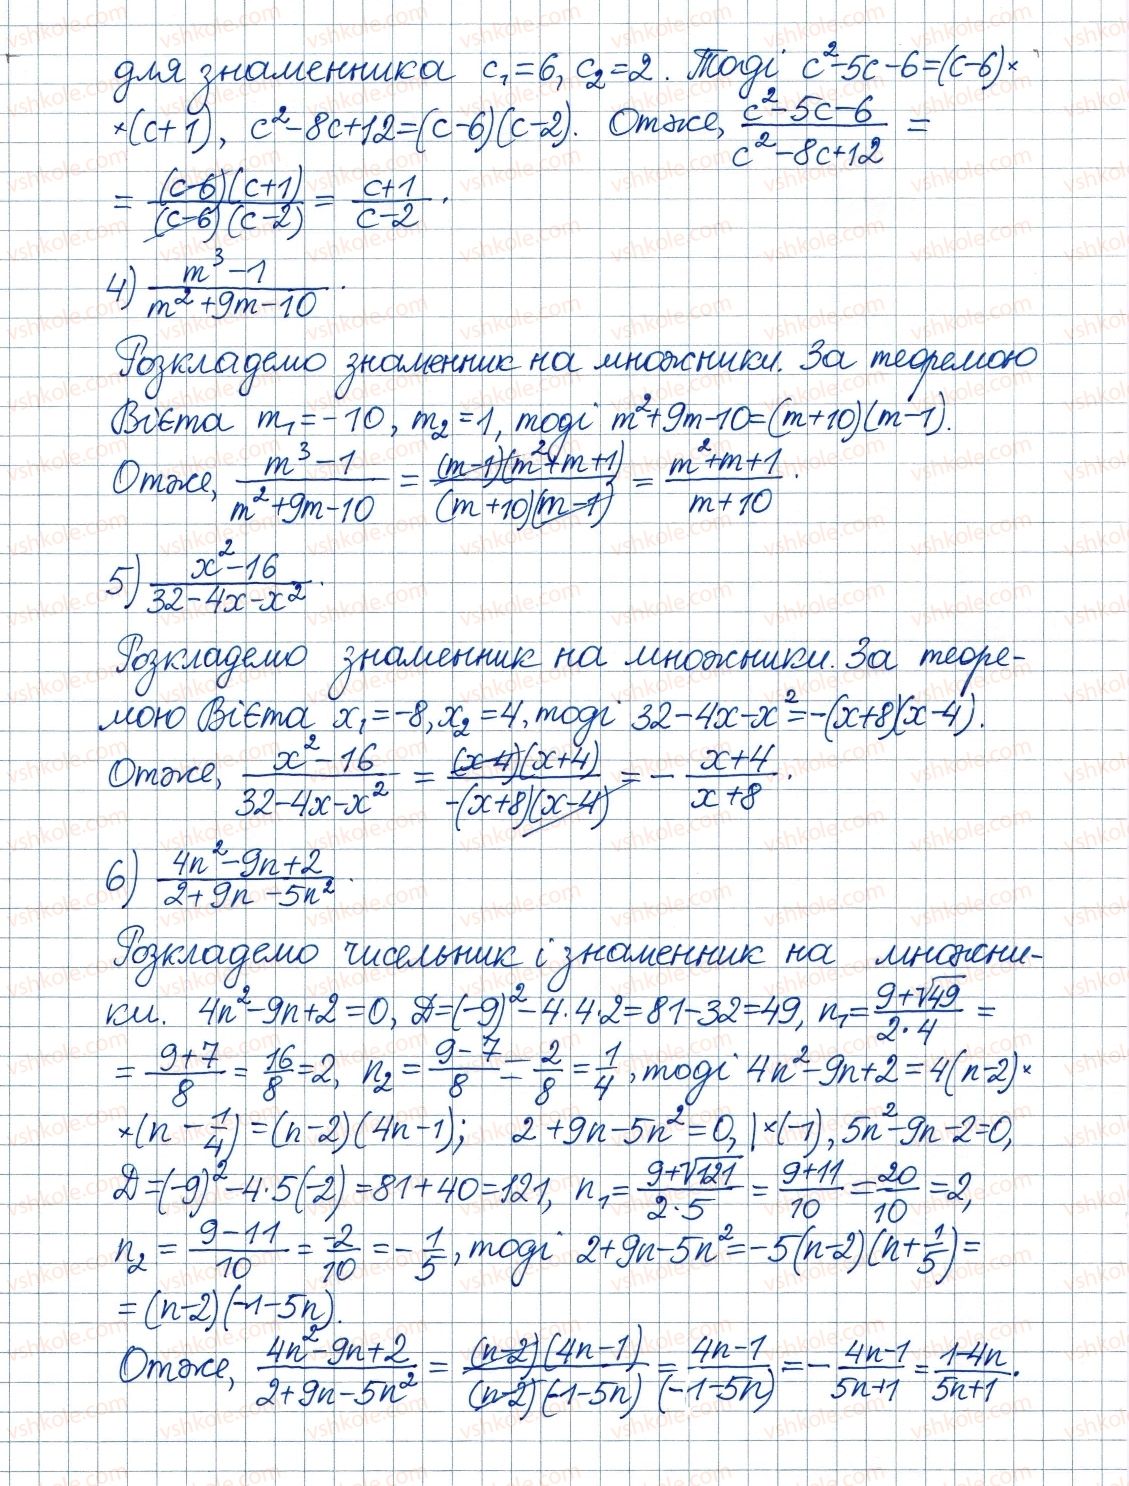 для знаменника c₁=6, c₂=2. Тоді c²-5c-6=(c-6)×
×(c+1), c²-8c+12=(c-6)(c-2). Отже, (c²-5c-6)/(c²-8c+12) =
= ((c-6)(c+1))/((c-6)(c-2)) = (c+1)/(c-2).
4) (m³-1)/(m²+9m-10).
Розкладемо знаменник на множники. За теоремою
Вієта m₁=-10, m₂=1, тоді m²+9m-10=(m+10)(m-1).
Отже, (m³-1)/(m²+9m-10) = ((m-1)(m²+m+1))/((m+10)(m-1)) = (m²+m+1)/(m+10).
5) (x²-16)/(32-4x-x²).
Розкладемо знаменник на множники. За теоре-
мою Вієта x₁=-8, x₂=4, тоді 32-4x-x²=-(x+8)(x-4).
Отже, (x²-16)/(32-4x-x²) = ((x-4)(x+4))/(-(x+8)(x-4)) = -(x+4)/(x+8).
6) (4n²-9n+2)/(2+9n-5n²).
Розкладемо чисельник і знаменник на множни-
ки. 4n²-9n+2=0, Д=(-9)²-4·4·2=81-32=49, n₁=(9+√49)/(2·4) =
= (9+7)/8 = 16/8 =2, n₂ = (9-7)/8 = 2/8 = 1/4, тоді 4n²-9n+2=4(n-2)×
×(n-1/4)=(n-2)(4n-1); 2+9n-5n²=0,|×(-1), 5n²-9n-2=0,
Д=(-9)²-4·5(-2)=81+40=121, n₁=(9+√121)/(2·5) = (9+11)/10 = 20/10 =2,
n₂ = (9-11)/10 = -2/10 = -1/5, тоді 2+9n-5n²=-5(n-2)(n+1/5)=
=(n-2)(-1-5n).
Отже, (4n²-9n+2)/(2+9n-5n²) = ((n-2)(4n-1))/((n-2)(-1-5n)) = (4n-1)/(-1-5n) = -(4n-1)/(5n+1) = (1-4n)/(5n+1).
vshkole.com